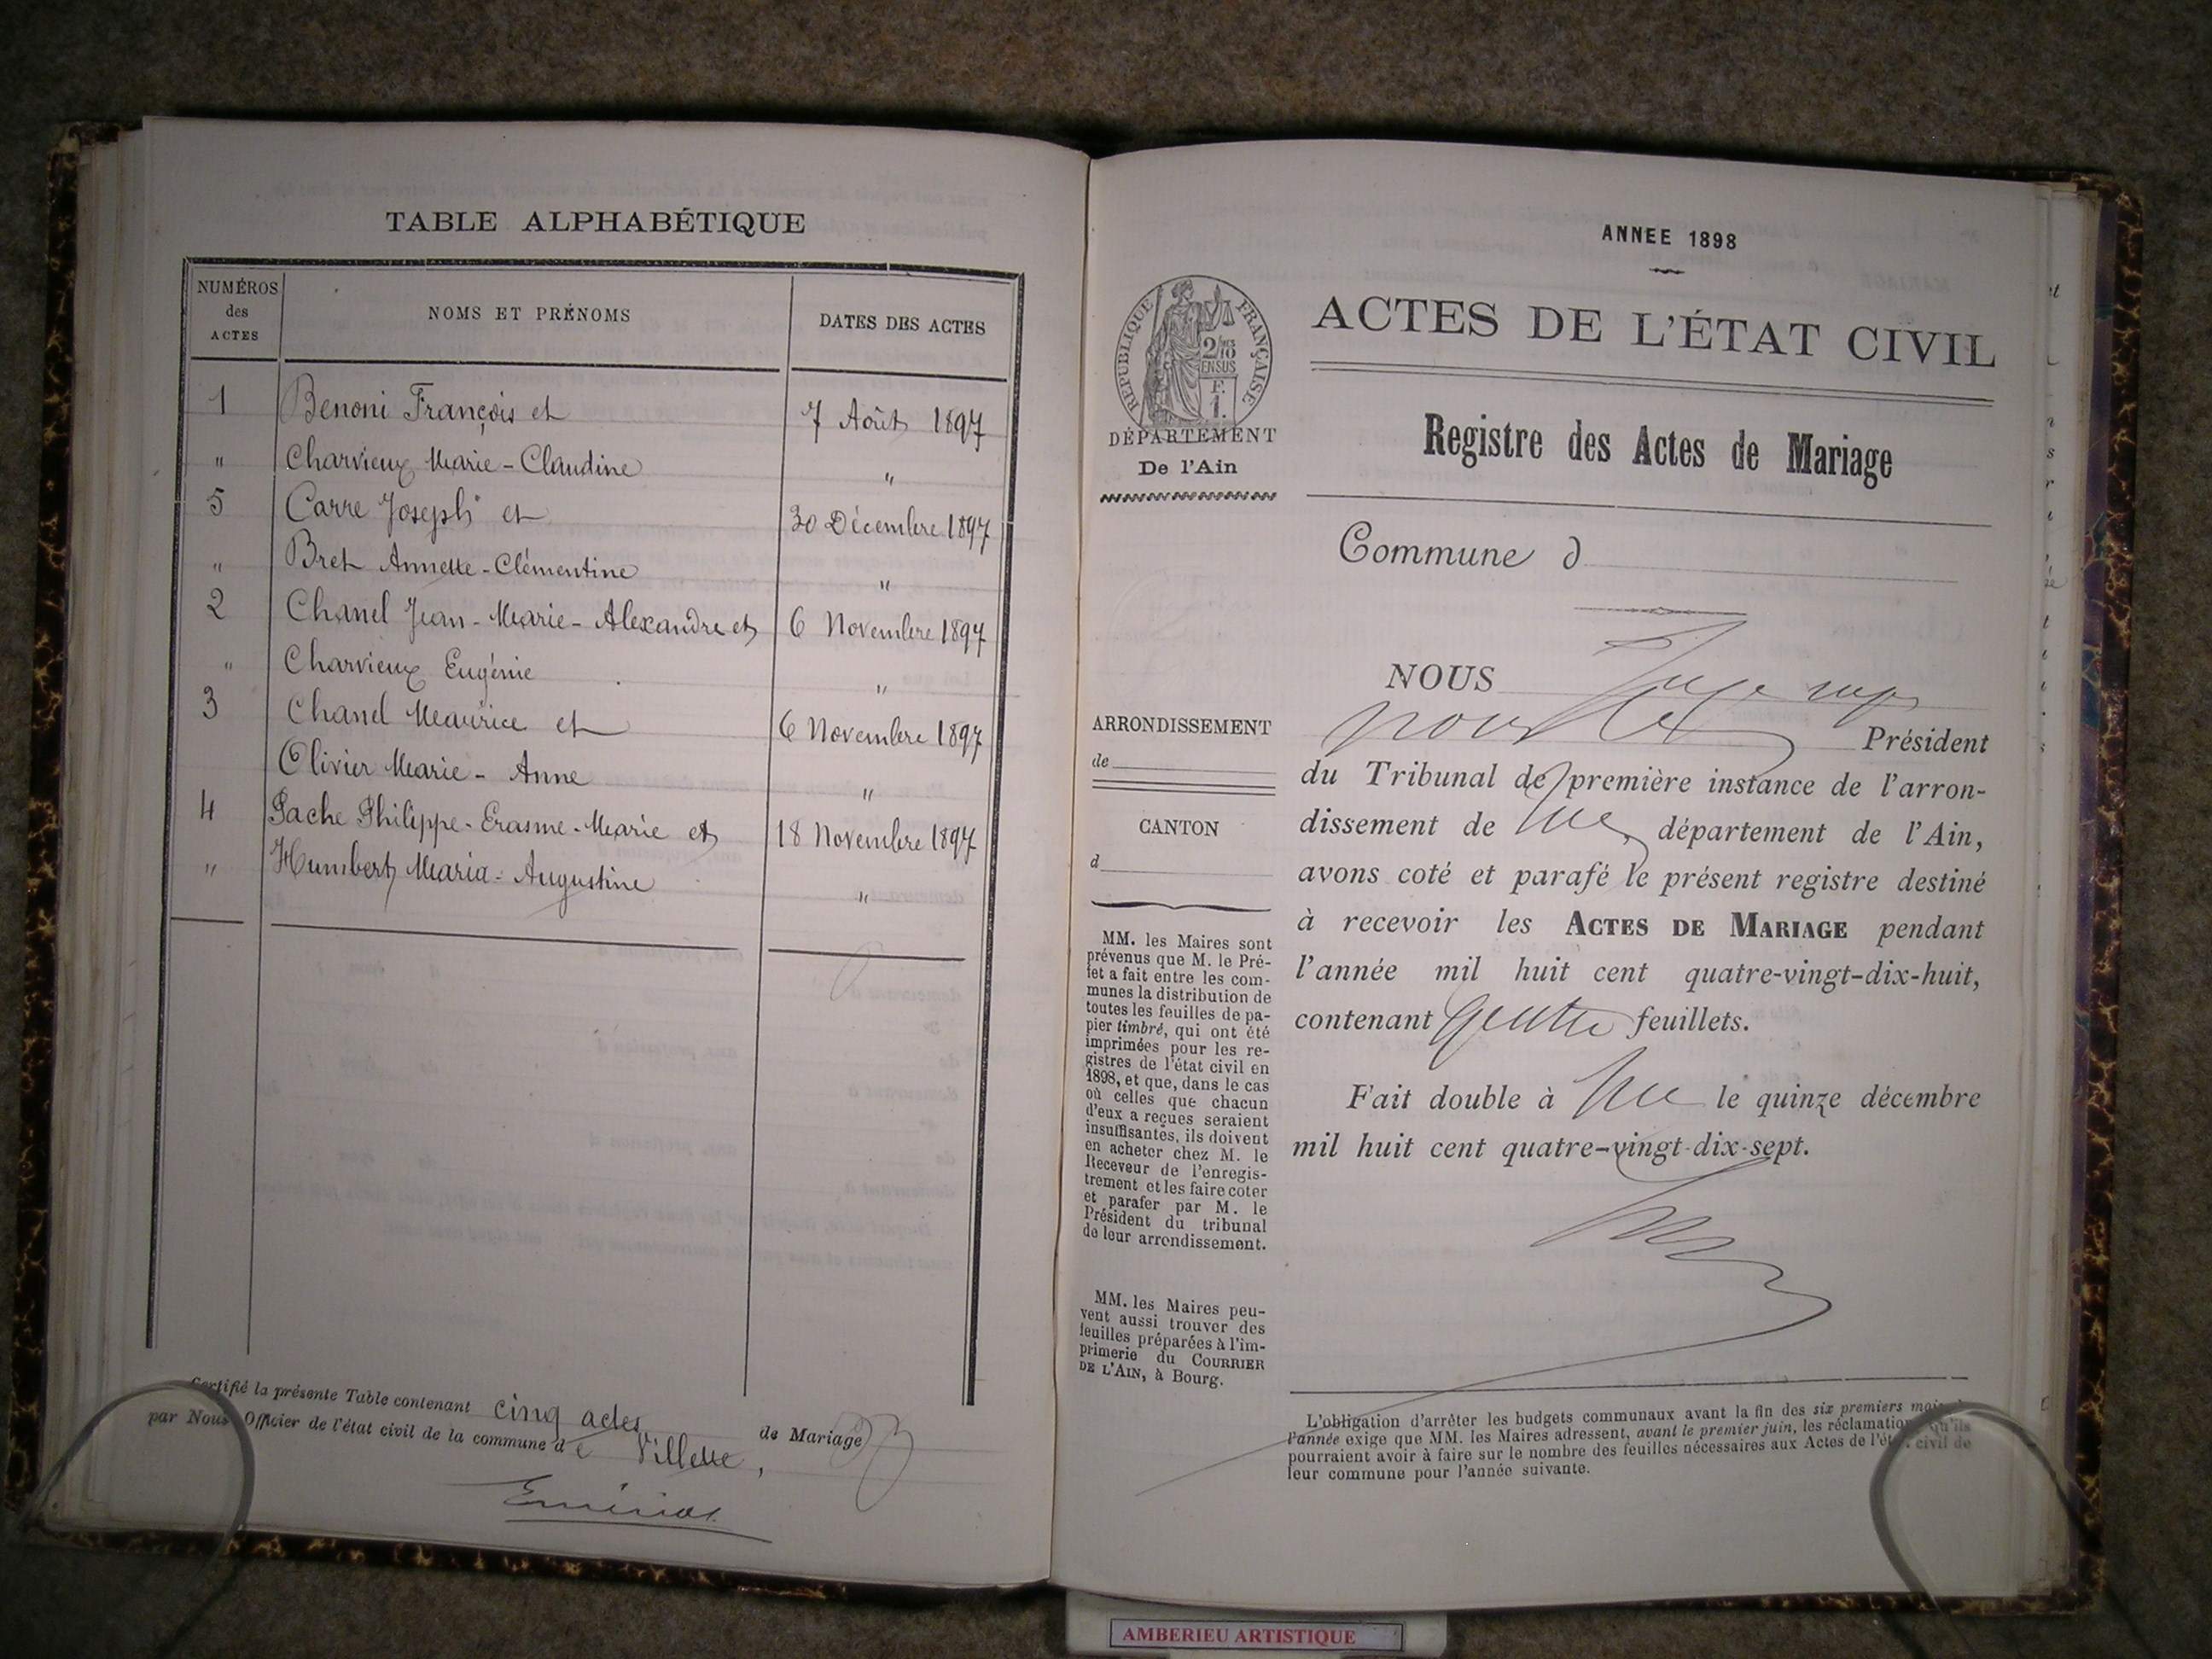 TABLE ALPHABÉTIQUE
NUMÉROS des ACTES
NOMS ET PRÉNOMS
DATES DES ACTES
1 Benoni François et 7 Août 1897
" Charvieux Marie-Claudine "
5 Carre Joseph et 30 Décembre 1897
" Bret Annette-Clémentine "
2 Chanel Jean-Marie-Alexandre et 6 Novembre 1897
" Charvieux Eugénie "
3 Chanel Maurice et 6 Novembre 1897
Olivier Marie-Anne "
4 Pache Philippe-Erasme-Marie et 18 Novembre 1897
" Humbert Maria-Augustine "
Certifié la présente Table contenant cinq actes de Mariage
par Nous Officier de l'état civil de la commune de Villette,
ANNEE 1898
RÉPUBLIQUE FRANÇAISE
2/10mes
EN SUS
F.
1.
ACTES DE L'ÉTAT CIVIL
DÉPARTEMENT
De l'Ain
Registre des Actes de Mariage
Commune d
NOUS
Président
du Tribunal de première instance de l'arron-
dissement de département de l'Ain,
avons coté et parafé le présent registre destiné
à recevoir les ACTES DE MARIAGE pendant
l'année mil huit cent quatre-vingt-dix-huit,
contenant feuillets.
Fait double à le quinze décembre
mil huit cent quatre-vingt-dix-sept.
ARRONDISSEMENT
de
CANTON
d
MM. les Maires sont
prévenus que M. le Pré-
fet a fait entre les com-
munes la distribution de
toutes les feuilles de pa-
pier timbré, qui ont été
imprimées pour les re-
gistres de l'état civil en
1898, et que, dans le cas
où celles que chacun
d'eux a reçues seraient
insuffisantes, ils doivent
en acheter chez M. le
Receveur de l'enregis-
trement et les faire coter
et parafer par M. le
Président du tribunal
de leur arrondissement.
MM. les Maires peu-
vent aussi trouver des
feuilles préparées à l'im-
primerie du COURRIER
DE L'AIN, à Bourg.
L'obligation d'arrêter les budgets communaux avant la fin des six premiers mois
l'année exige que MM. les Maires adressent, avant le premier juin, les réclamations qu'ils
pourraient avoir à faire sur le nombre des feuilles nécessaires aux Actes de l'état civil de
leur commune pour l'année suivante.
AMBERIEU ARTISTIQUE